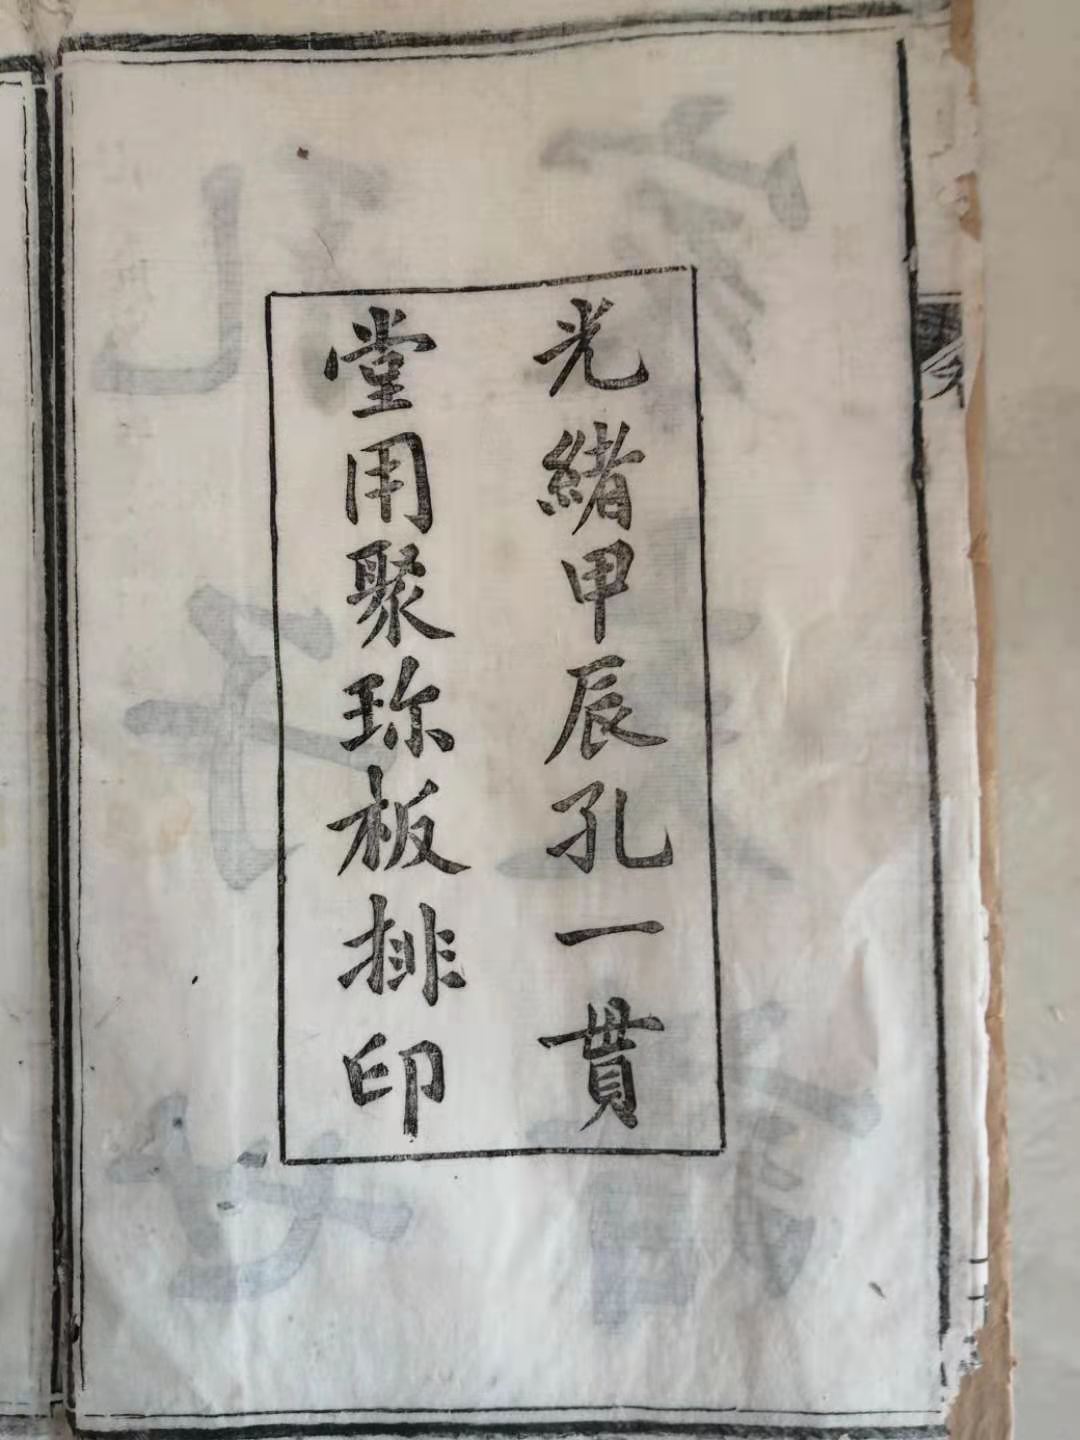 光緒甲辰孔一貫
堂用聚珎板排印